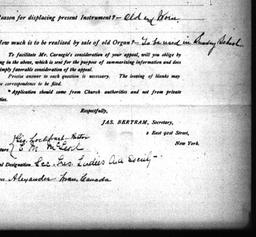 Reason for displacing present Instrument?— Old and Worn
How much is to be realized by sale of old Organ?— To be used in Sunday School
To facilitate Mr. Carnegie's consideration of your appeal, will you oblige by
ing in the above, which is sent for the purpose of summarizing information and does
imply favorable consideration of the appeal.
Precise answer to each question is necessary. The leaving of blanks may
ve correspondence to be filed.
*Application should come from Church authorities and not from private
individuals.
Respectfully,
JAS. BERTRAM, Secretary,
2 East 91st Street,
New York.
McLeod
ial Designation Sec. Ladies Aid Society
Alexander Man. Canada